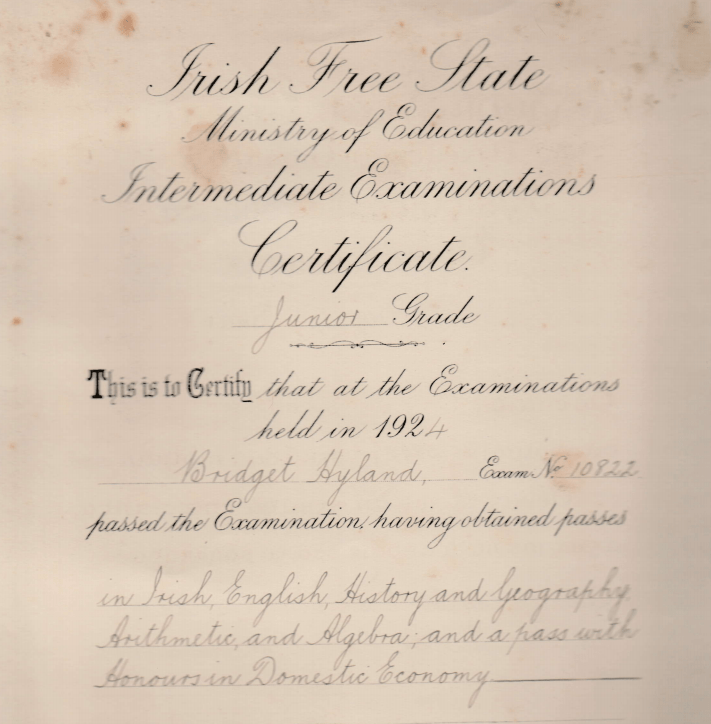 Irish Free State
Ministry of Education
Intermediate Examinations
Certificate.
Junior Grade
This is to Certify that at the Examinations
held in 1924
Bridget Hyland, Exam. No. 10822
passed the Examination, having obtained passes
in Irish, English, History and Geography,
Arithmetic, and Algebra; and a pass with
Honours in Domestic Economy